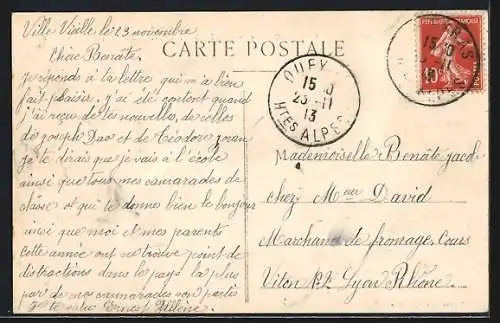 Ville Vieille le 23 novembre
Chère Benate.
CARTE POSTALE
Je réponds à ta lettre qui m'a bien
fait plaisir, j'ai été content quand
j'ai reçu de tes nouvelles, de celles
de joseph Dao et de Téodore
je te dirais que je vais à l'école
ainsi que tous mes camarades de
classe et qui te donne bien le bonjour
ainsi que moi et mes parents
Cette année ont ne trouve point de
distractions dans le pays la plus
par de nos camarades son partis
Je te salue Ernest
QUEY
15
23 - 11
13
HTES ALPES
15
11
Mademoiselle Benate
chez Meur David
Marchand de fromage. Cours
Lyon Rhône